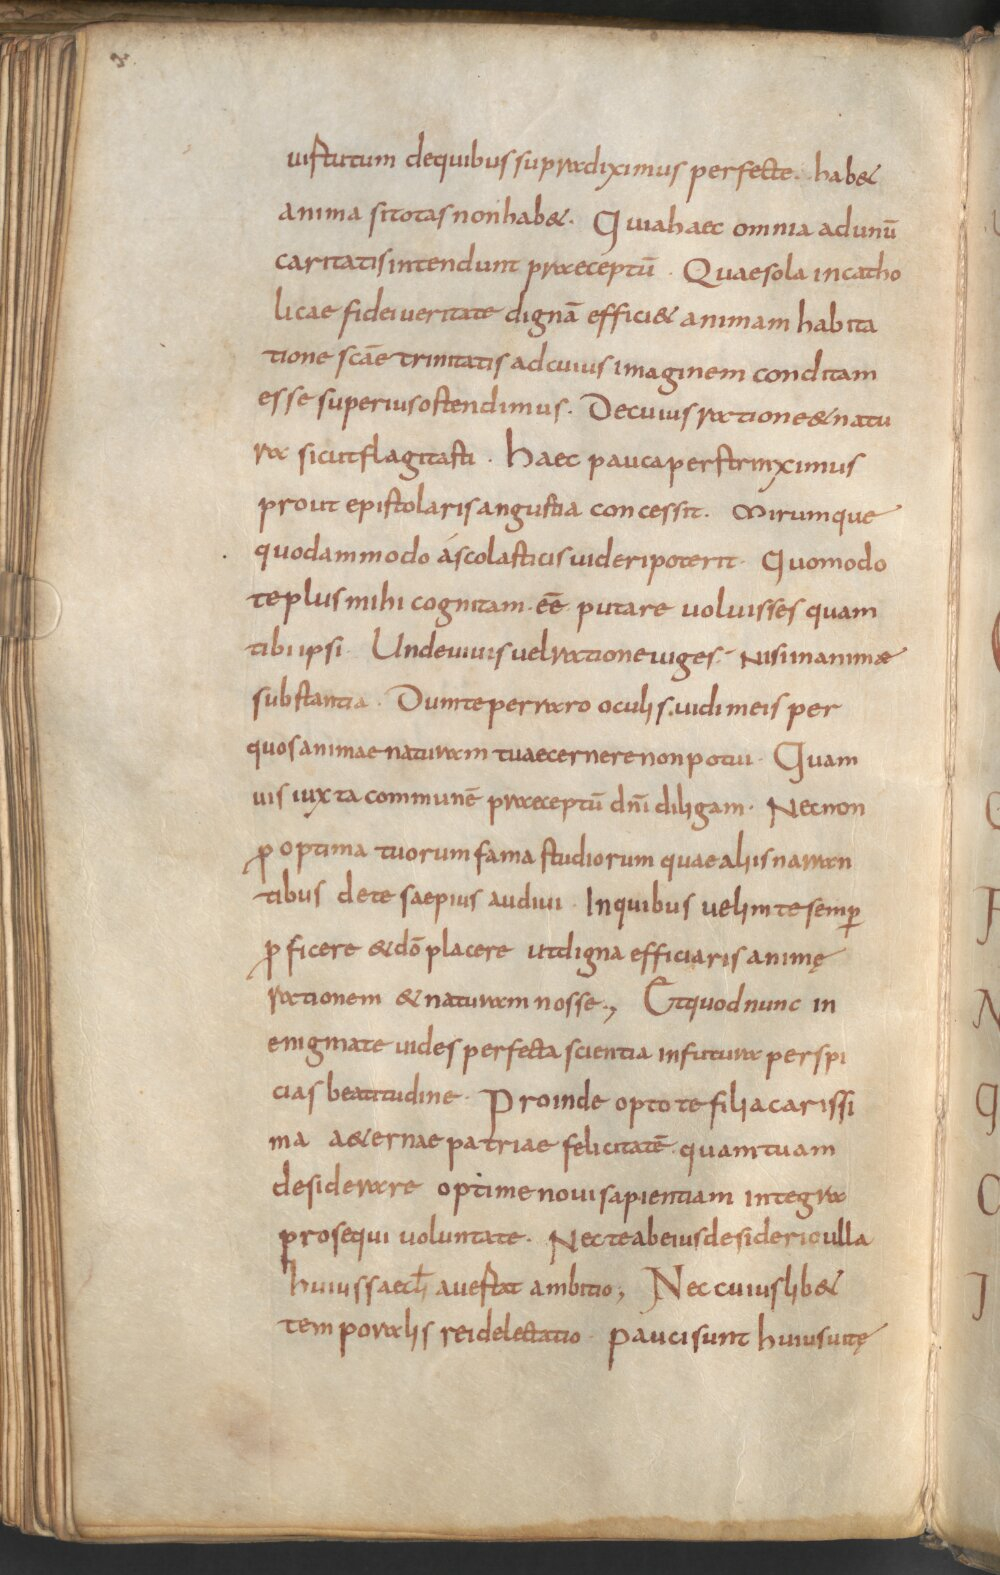 uirtutum dequibus supradiximus perfecte. hab&
anima sitotas non hab&. Quia haec omnia ad unū
caritatis intendunt praeceptū. Quae sola in catho
licae fidei ueritate dignā effici& animam habita
tione scāe trinitatis ad cuius imaginem conditam
esse superius ostendimus. De cuius ratione & natu
ra sicut flagitasti. Haec pauca perstrinximus
prout epistolaris angustia concessit. Mirumque
quodammodo á scolasticis uideri poterit. Quomodo
te plus mihi cognitam. eē putare uoluisses quam
tibi ipsi. Unde uiuis uel ratione uiges. Nisi in animae
substantia. Dum te per raro oculis uidi meis per
quos animae naturam tuae cernere non potui. Quam
uis iuxta communē praeceptū dn̄i diligam. Nec non
ꝓ optima tuorum fama studiorum quae aliis narran
tibus de te saepius audiui. In quibus uelim te semꝑ
ꝓficere & dō placere ut digna efficiaris animę
rationem & naturam nosse., Et quod nunc in
enigmate uides perfecta scientia in futura perspi
cias beatitudine. Proinde opto te filia carissi
ma a&ernae patriae felicitatē. quam tuam
desiderare optime noui sapientiam integra
prosequi uoluntate. Nec te ab eius desiderio ulla
huius saecłi auertat ambitio, Nec cuius lib&
temporalis rei delectatio. Pauci sunt huius uitę